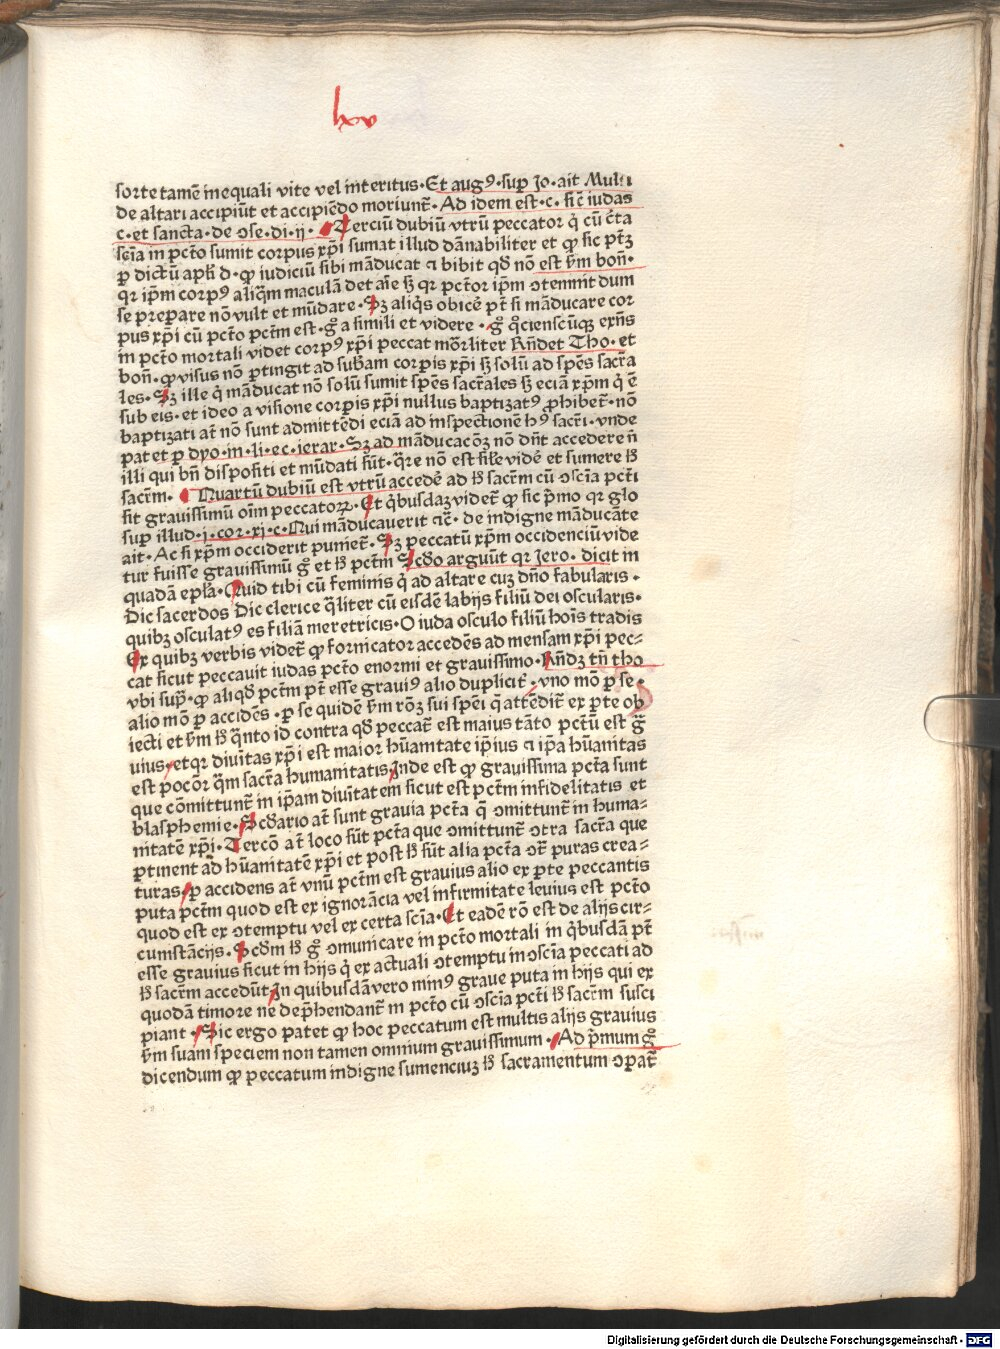 lxv
sorte tamē inequali vite vel interitus·Et augꝰ·suꝑ Jo·ait Multi
de altari accipiūt et accipiēdo moriunt᷑·Ad idem est·c·sic̄ iudas
c·et sancta·de ↄse·di·ij· Terciū dubiū vtrū peccator q̇ cū c̄ta
scīa in pctō sumit corpus xp̄i sumat illud dānabiliter et ꝙ sic ptꝫ
ꝑ dictū apl̄i d·ꝙ iudiciū sibi māducat ⁊ bibit qd̄ nō est ẜm bon̄·
qr ipm̄ corpꝰ aliq̄m maculā det aīe sꝫ qr pctor̄ ipm̄ ↄtemnit dum
se preparare nō vult et mūdare·Sꝫ aliq̇s obicē pt᷑ si māducare cor
pus xp̄i cū pctō pctm̄ est·gͦ a simili et videre·gͦ q̇cienscūqꝫ exn̄s
in pctō mortali videt corpꝰ xp̄i peccat mōrliter Rn̄det Tho·et
bon̄·ꝙ visus nō ꝑtingit ad sub̄am corpis xp̄i sꝫ solū ad spēs sacr̄a
les·Sꝫ ille q̇ māducat nō solū sumit spēs sacr̄ales sꝫ eciā xp̄m q̇ ē
sub eis·et ideo a visione corꝑis xp̄i nullus baptizatꝰ ꝓhibet᷑·nō
baptizati at̄ nō sunt admittēdi eciā ad inspectionē hꝰ sacr̄i·vnde
patet ꝑ dyo·in·li·ec·ierar·Sꝫ ad māducacōꝫ nō dn̄t accedere n̄
illi qui bn̄ dispositi et mūdati sūt·q̄re nō est sīle vidē et sumere h̄
sacr̄m· Quartū dubiū est vtrū accedē ad h̄ sacr̄m cū ↄscīa pct̄i
sit grauissimū oīm peccatoꝝ·Et q̇busdaꝫ videt᷑ ꝙ sic p̄mo qr glo
suꝑ illud·j·cor·xj·c·Qui māducauerit ⁊c̄·de indigne māducāte
ait·Ac si xp̄m occiderit puniet᷑·Sꝫ peccatū xp̄m occidenciū vide
tur fuisse grauissimū gͦ et h̄ pctm̄ Scd̄o arguūt qr Jero·dicit in
quadā epl̄a·Quid tibi cū feminis q̇ ad altare cuꝫ dn̄o fabularis·
Dic sacerdos Dic clerice q̄liter cū eisdē labijs filiū dei oscularis·
quibꝫ osculatꝰ es filiā meretricis·O iuda osculo filiū hoīs tradis
Ex quibꝫ verbis videt᷑ ꝙ fornicator accedēs ad mensam xp̄i pec⸗
cat sicut peccauit iudas pctō enormi et grauissimo·Rn̄dꝫ tn̄ tho
vbi sup̄·ꝙ aliqd̄ pctm̄ pt᷑ esse grauiꝰ alio duplicit᷑·vno mō ꝑ se·
alio mō ꝑ accidēs·ꝑ se quidē ẜm rōꝫ sui spēi q̄ attēdit᷑ ex ꝑte ob
iecti et ẜm h̄ q̄nto id contra qd̄ peccat᷑ est maius tāto pctū est gͣ
uius·et qr diuītas xp̄i est maior hūanitate ipīus ⁊ ip̄a hūanitas
est pocōr q̄m sacr̄a humanitatis Inde est ꝙ grauissima pctā sunt
que cōmittunt᷑ in ip̄am diuītatem sicut est pctm̄ infidelitatis et
blasphemie·Scd̄ario at̄ sunt grauia pctā q̄ ↄmittunt᷑ in huma⸗
nitatē xp̄i·Tercō at̄ loco sūt pctā que ↄmittunt᷑ ↄtra sacr̄a que
ꝑtinent ad hūanitatē xp̄i et post h̄ sūt alia pctā ↄt᷑ puras crea⸗
turas·ꝑ accidens at̄ vnū pctm̄ est grauius alio ex ꝑte peccantis
puta pctm̄ quod est ex ignorācia vel infirmitate leuius est pctō
quod est ex ↄtemptu vel ex certa scīa·Et eadē rō est de alijs cir⸗
cumstācijs·Scd̄m h̄ gͦ ↄmunicare in pctō mortali in q̇busdā pt᷑
esse grauius sicut in hijs q̇ ex actuali ↄtemptu in ↄscīa peccati ad
h̄ sacr̄m accedūt In quibusdā vero minꝰ graue puta in hijs qui ex
quodā timore ne dep̄hendant᷑ in pctō cū ↄscīa pct̄i h̄ sacr̄m susci
piant·Sic ergo patet ꝙ hoc peccatum est multis alijs grauius
ẜm suam speciem non tamen omnium grauissimum·Ad p̄mum gͦ
dicendum ꝙ peccatum indigne sumenciuꝫ h̄ sacramentum ↄꝑat᷑
Digitalisierung gefördert durch die Deutsche Forschungsgemeinschaft - DFG